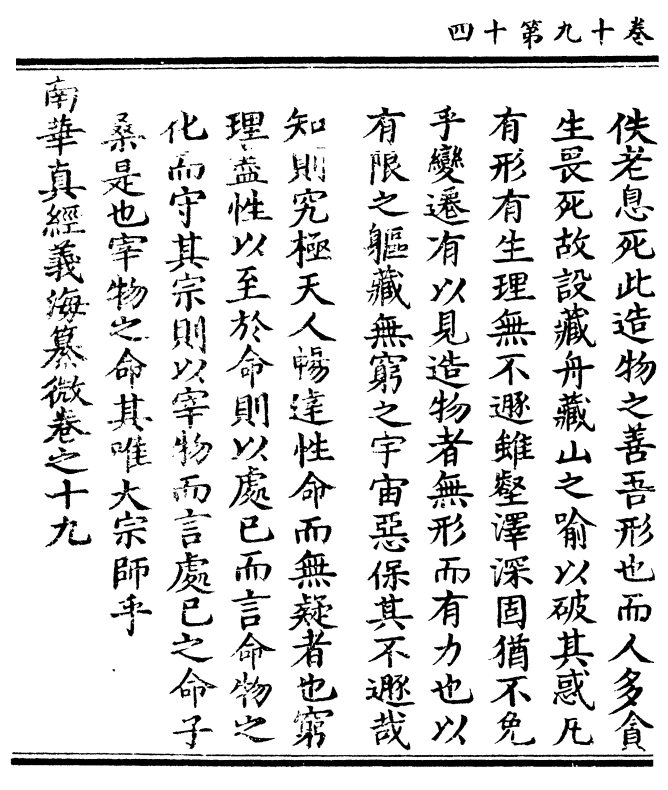 卷十九第十四
佚老息死此造物之善吾形也而人多貪
生畏死故設藏舟藏山之喻以破其惑凡
有形有生理無不遯雖壑澤深固猶不免
乎變遷有以見造物者無形而有力也以
有限之軀藏無窮之宇宙惡保其不遯哉
知則究極天人暢達性命而無疑者也窮
理盡性以至於命則以處已而言命物之
化而守其宗則以宰物而言處已之命子
桑是也宰物之命其唯大宗師乎
南華真經義海纂微卷之十九